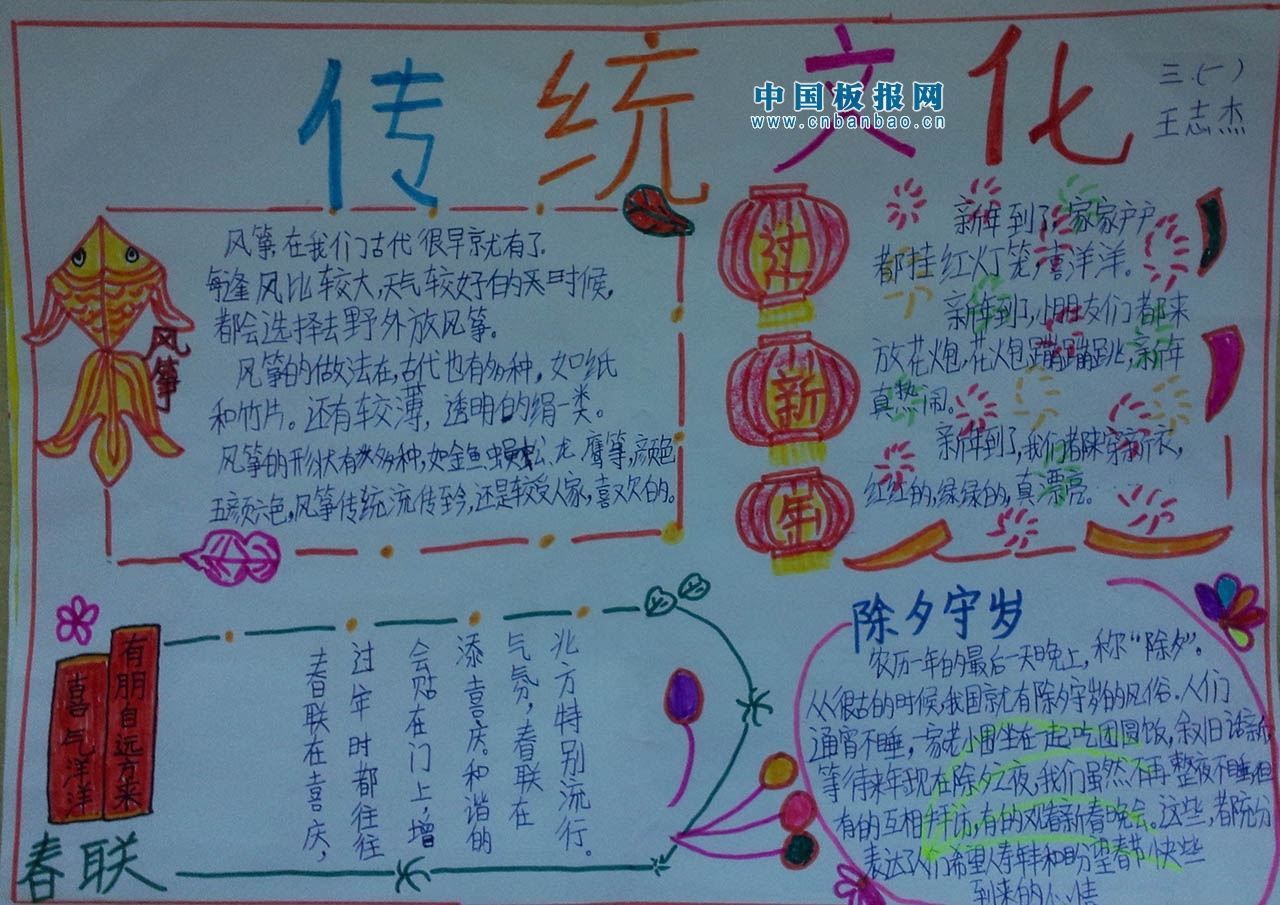 传统文化
中国板报网
www.cnbanbao.cn
三.(一)
王志杰
风筝
风筝在我们古代很早就有了.
每逢风比较大,天气较好的时候,
都会选择去野外放风筝。
风筝的做法在,古代也有多种,如纸
和竹片。还有较薄,透明的绢一类。
风筝的形状有多种,如金鱼蜈蚣、龙、鹰等,颜色
五颜六色,风筝传统流传至今,还是较受人家,喜欢的。
过新年
新年到了,家家户户
都挂红灯笼,喜洋洋。
新年到了,小朋友们都来
放花炮,花火包蹦蹦跳,新年
真热闹。
新年到了,我们都来穿新衣,
红红的,绿绿的,真漂亮。
有朋自远方来
喜气洋洋
春联
春联在喜庆,
过年时都往往
会贴在门上,增
添喜庆。和谐的
气氛,春联在
北方特别流行。
除夕守岁
农历一年的最后一天晚上,称“除夕”。
从很古的时候,我国就有除夕守岁的风俗.人们
通宵不睡,一家老小围坐在一起吃团圆饭,叙旧话新,
等待来年现在除夕之夜,我们虽然不再整夜不睡,但
有的互相拜访,有的观看新春晚会。这些,都充分
表达了人们希望人寿年丰和盼望春节快些
到来的心情